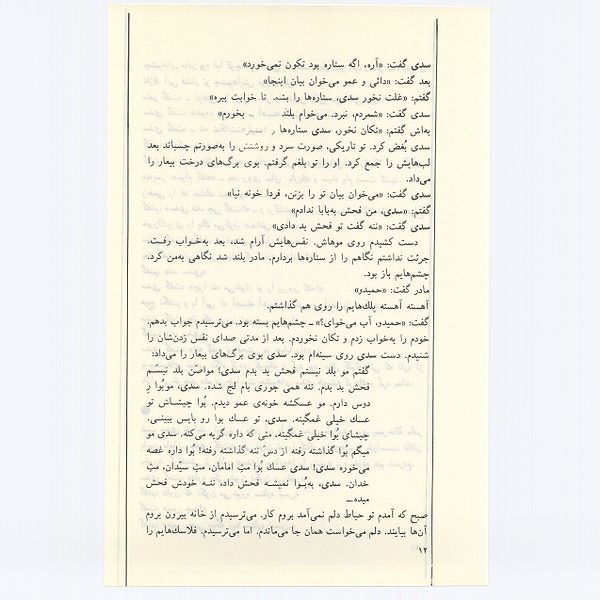 سدی گفت: «آره، اگه ستاره بود تکون نمی‌خورد»
بعد گفت: «دائی و عمو می‌خوان بیان اینجا»
گفتم: «غلت نخور سدی، ستاره‌ها را بشمر تا خوابت ببره»
سدی گفت: «شمردم، نبرد. می‌خوام بلند بخورم»
به‌اش گفتم: «تکان نخور، سدی ستاره‌ها را بشمر»
سدی بُغض کرد. تو تاریکی، صورت سرد و روشنش را به‌صورتم چسباند بعد
لب‌هایش را جمع کرد. او را تو بلغم گرفتم. بوی برگ‌های درخت بیعار را
می‌داد.
سدی گفت: «می‌خوان بیان تو را بزنن، فردا خونه نیا»
گفتم: «سدی، من فحش به‌بابا ندادم»
سدی گفت: «ننه گفت تو فحش بد دادی»
دست کشیدم روی موهاش. نفس‌هایش آرام شد، بعد به‌خواب رفت.
جرئت نداشتم نگاهم را از ستاره‌ها بردارم. مادر بلند شد نگاهی به‌من کرد.
چشم‌هایم باز بود.
مادر گفت: «حمیدو»
آهسته آهسته پلك‌هایم را روی هم گذاشتم.
گفت: «حمیدو، آب می‌خوای؟» ـ چشم‌هایم بسته بود. می‌ترسیدم جواب بدهم.
خودم را به‌خواب زدم و تکان نخوردم. بعد از مدتی صدای نفس زدن‌شان را
شنیدم. دست سدی روی سینه‌ام بود. سدی بوی برگ‌های بیعار را می‌داد:
گفتم مو بلد نیستم فحش بد بدم سدی! مواصّن بلد نیستم
فحش بد بدم. ننه همی جوری بام لج شده. سدی، مو بُوا رِ
دوس دارم. مو عسکشه خونه‌ی عمو دیدم. بُوا چیشاش تو
عسك خیلی غمگینه. سدی، تو عسك بوا رو بایس ببینی.
چیشای بُوا خیلی غمگینه، مثی که داره گریه می‌کنه. سدی مو
میگم بُوا گذاشته رفته از دس ننه گذاشته رفته! بُوا داره غصه
می‌خوره سدی! سدی عسك بُوا مثِ امامان، مثِ سیّدان، مثِ
خدان. سدی، به‌بُوا نمیشه فحش داد، ننه خودش فحش
میده...
صبح که آمدم تو حیاط دلم نمی‌آمد بروم کار. می‌ترسیدم از خانه بیرون بروم
آن‌ها بیایند. دلم می‌خواست همان جا می‌ماندم. اما می‌ترسیدم. فلاسك‌هایم را
۱۲